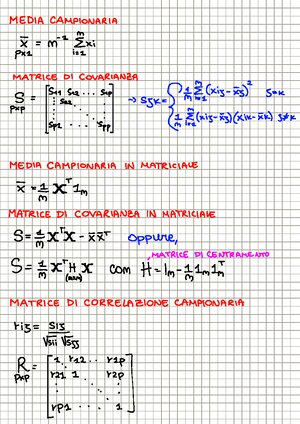 MEDIA CAMPIONARIA
x̄ = n⁻¹ Σⁿᵢ₌₁ xi
p×1
MATRICE DI COVARIANZA
S = [S11 S12 ... S1p
: S22 . :
: . . :
Sp1 ... Spp]
p×p
→ Sjk = { 1/n Σⁿᵢ₌₁ (xij - x̄j)² j=k
1/n Σⁿᵢ₌₁ (xij - x̄j)(xik - x̄k) j≠k
MEDIA CAMPIONARIA IN MATRICIALE
x̄ = 1/n Xᵀ 1n
MATRICE DI COVARIANZA IN MATRICIALE
S = 1/n XᵀX - x̄x̄ᵀ oppure,
MATRICE DI CENTRAMENTO
S = 1/n Xᵀ H X com H = In - 1/n 1n 1nᵀ
(n×n)
MATRICE DI CORRELAZIONE CAMPIONARIA
rij = Sij / √Sii √Sjj
R = [1 r12 ... r1p
r21 1 . r2p
: . . :
rp1 ... 1]
p×p